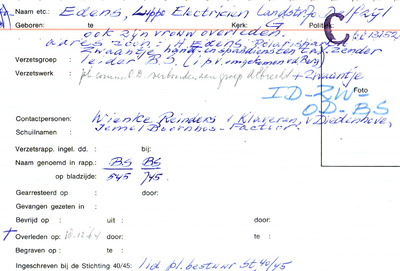 Naam etc.: Edens, Luppo Electricien Landstr. Delfzijl
Geboren: te : Kerk: G Politiek:
ook zijn vrouw overleden.
adres zoon: H Edens, Polarispad
Zwaantje hand- en spandiensten t.a.v. zender
Verzetsgroep leider B.S. i.p.v. omgekomen vd Berg
Verzetswerk pl. comm. O.D. verbindensgroep + Zwaantje
ID-ZW-
OD-BS
Foto
Contactpersonen: Wienke Reinders, Klaveren, v Diedenhoven,
Schuilnaam : Jemel Boornhos- Facteur.
Verzetsrapp. ingel. dd. : bij:
Naam genoemd in rapp.: BS BS
op bladzijde: 545 745
Gearresteerd op : door:
Gevangen gezeten in :
Bevrijd op : uit : door:
+ Overleden op: te : door:
Begraven op : te :
Ingeschreven bij de Stichting 40/45: lid pl. bestuur St. 40/45